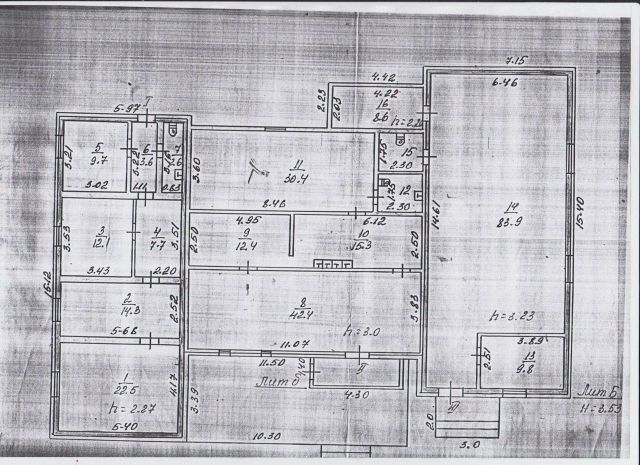 7.15
6.46
4.42
4.22
16
8.6
h=2.20
2.23
2.03
I
5.97
5
9.7
3.21
3.02
6
3.6
3.22
1.11
7
2.6
3.16
0.83
3.60
11
30.4
8.46
1.75
15
2.30
1.75
12
2.30
14.61
14
83.9
15.40
h=3.23
3
12.1
3.53
3.43
4
7.7
3.51
2.20
2.50
4.95
9
12.4
6.12
10
15.3
2.50
15.12
2
14.3
5.68
2.52
8
42.4
3.83
h=3.0
11.07
II
1
22.5
h=2.27
5.40
4.17
3.39
11.50
Лит б
1.40
4.30
10.30
3.89
2.51
13
9.8
2.0
3.0
Лит Б
H=3.53